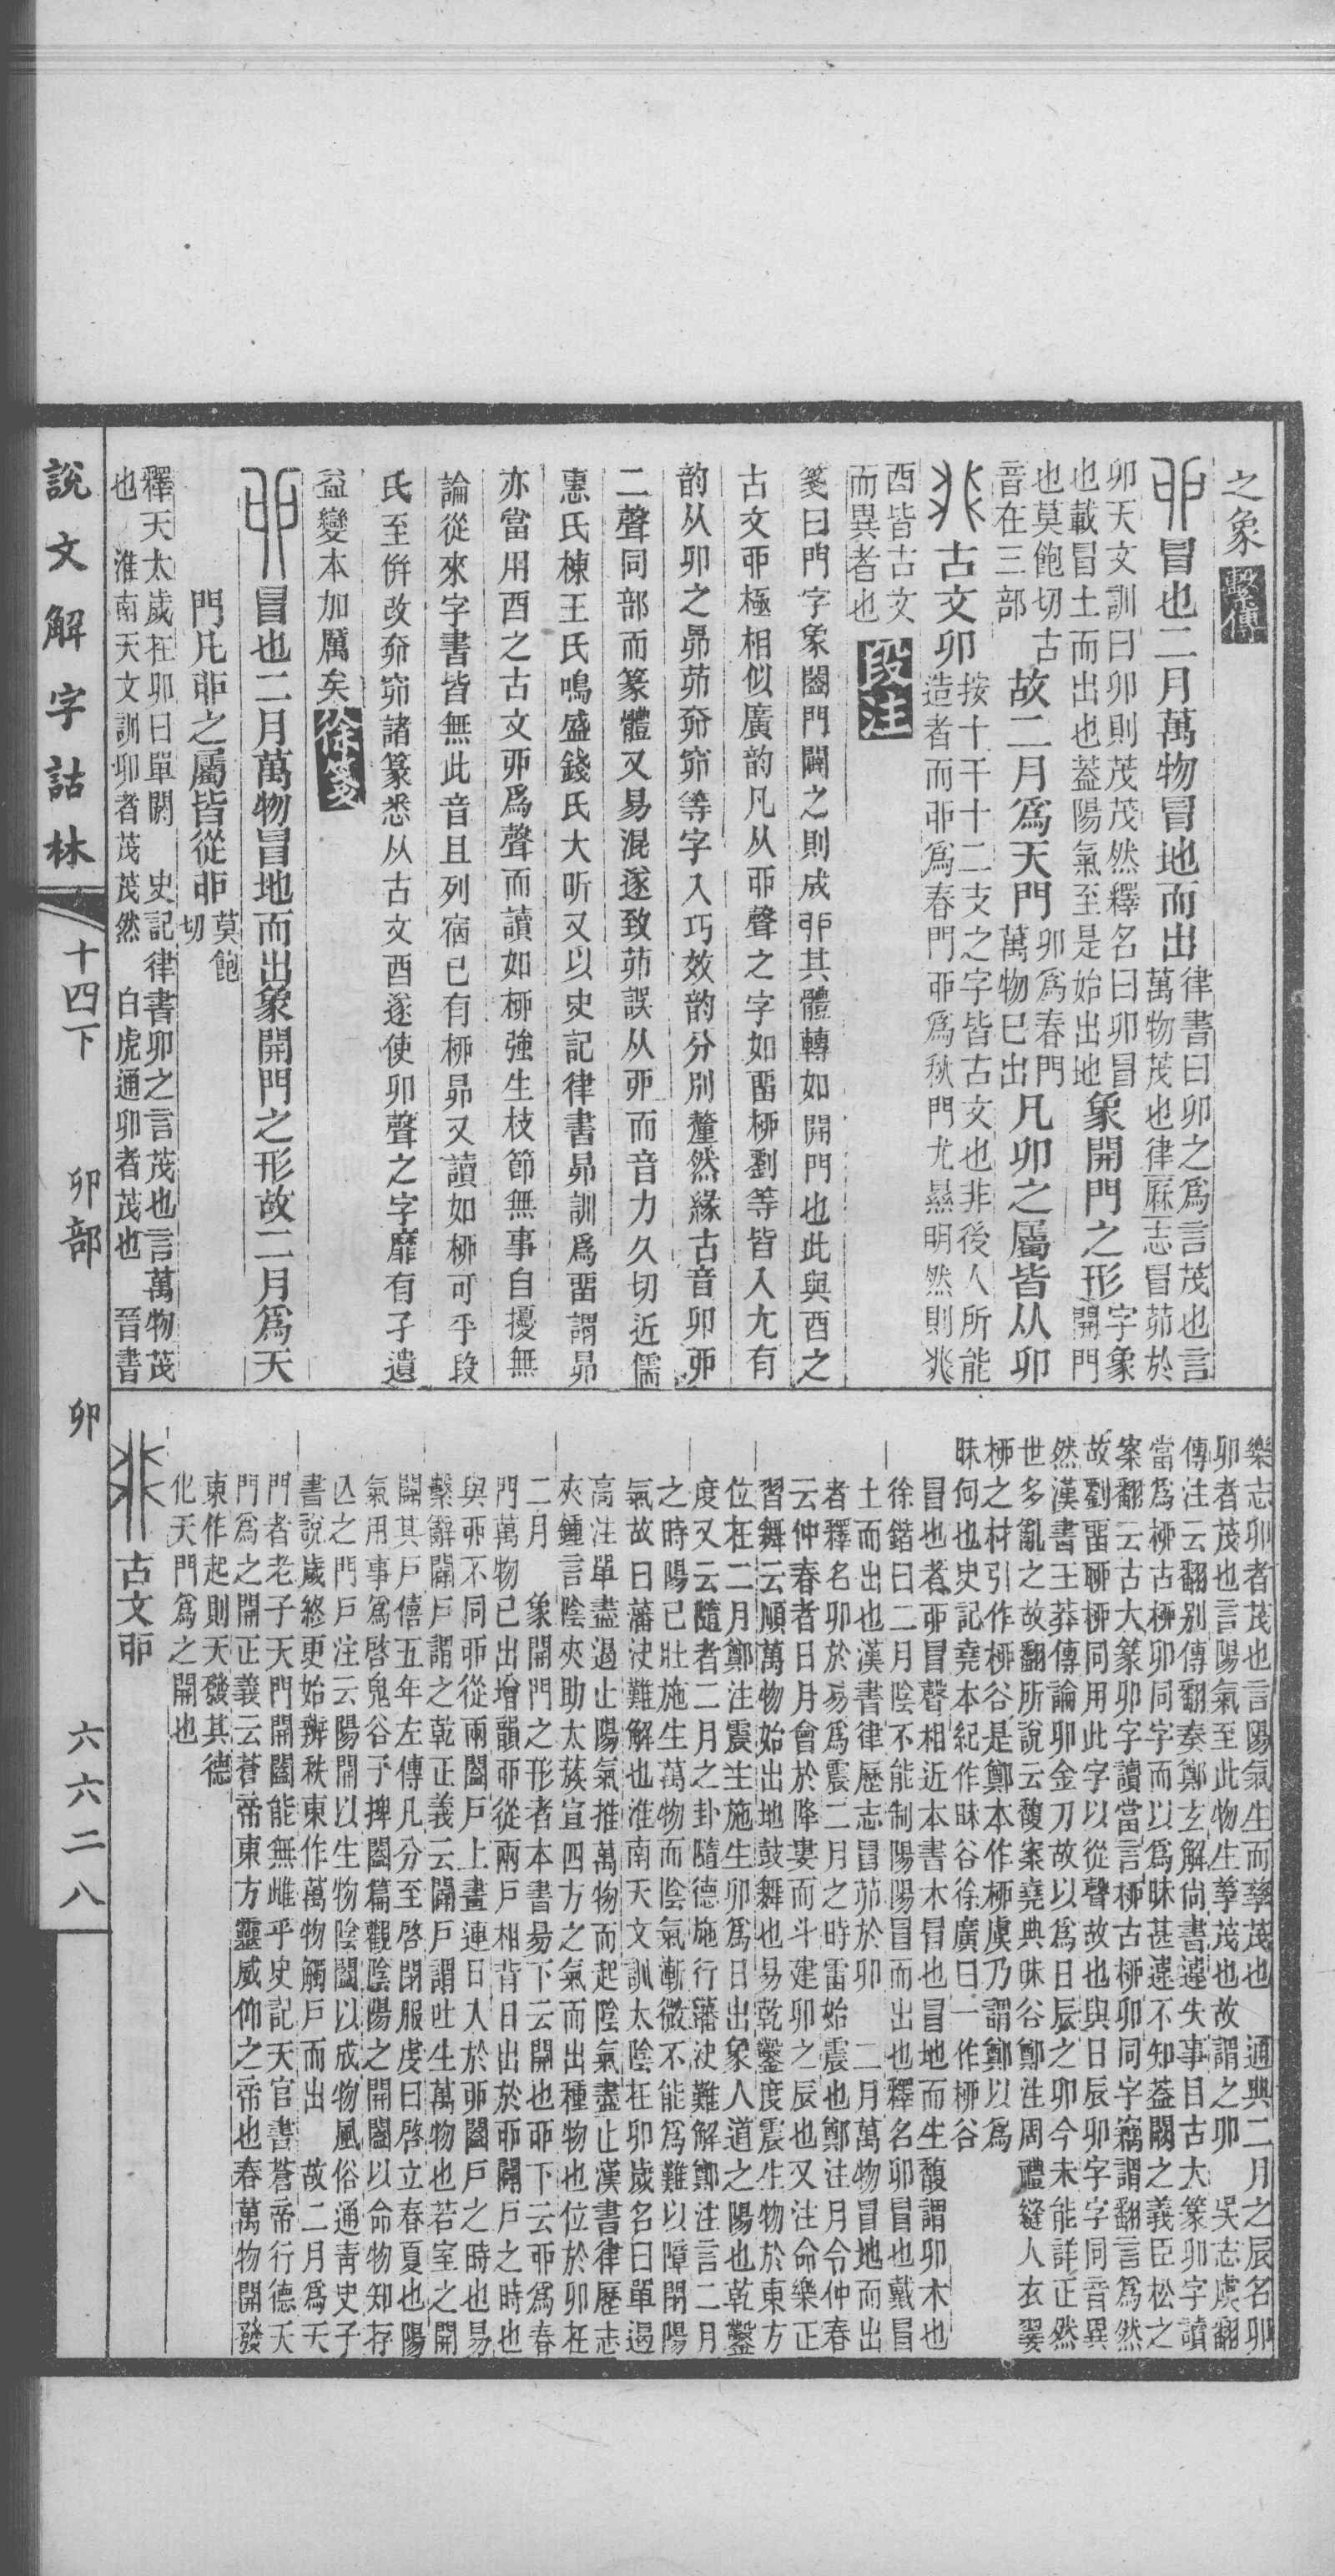 之象繫傳
冒也二月萬物冒地而出律書曰卯之爲言茂也言
萬物茂也律厤志冒茆於
卯天文訓曰卯則茂茂然釋名曰卯冒
也載冒土而出也葢陽氣至是始出地象開門之形字象
開門
也莫飽切古
音在三部故二月爲天門卯爲春門
萬物已出凡卯之屬皆从卯
古文卯按十干十二支之字皆古文也非後人所能
造者而丣爲春門丣爲秋門尤㬎明然則兆
酉皆古文
而異者也段注
箋曰門字象闔門闢之則成卯其體轉如開門也此與酉之
古文丣極相似廣韵凡从丣聲之字如畱桺劉等皆入尢有
韵从卯之昴茆奅窌等字入巧效韵分別釐然緣古音卯丣
二聲同部而篆體又易混遂致茆誤从丣而音力久切近儒
惠氏棟王氏鳴盛錢氏大昕又以史記律書昴訓爲畱謂昴
亦當用酉之古文丣爲聲而讀如桺強生枝節無事自擾無
論從來字書皆無此音且列宿已有桺昴又讀如桺可乎段
氏至倂改奅窌諸篆悉从古文酉遂使卯聲之字靡有孑遺
益變本加厲矣徐箋
冒也二月萬物冒地而出象開門之形故二月爲天
門凡丣之屬皆從丣莫飽
切
釋天太歲在卯曰單閼 史記律書卯之言茂也言萬物茂
也 淮南天文訓卯者茂茂然 白虎通卯者茂也 晉書
樂志卯者茂也言陽氣生而孳茂也 通典二月之辰名卯
卯者茂也言陽氣至此物生孳茂也故謂之卯 吳志虞翻
傳注云翻别傳翻奏鄭玄解尙書違失事目古大篆卯字讀
當爲桺古桺卯同字而以爲昧甚違不知葢闕之義臣松之
案翻云古大篆卯字讀當言桺古桺卯同字竊謂翻言爲然
故劉畱聊桺同用此字以從聲故也與日辰卯字字同音異
然漢書王莽傳論卯金刀故以爲日辰之卯今未能詳正然
世多亂之故翻所說云馥案堯典昧谷鄭注周禮縫人衣翣
桺之材引作桺谷是鄭本作桺虞乃謂鄭以爲
昧何也史記堯本紀作昧谷徐廣曰一作桺谷
冒也者丣冒聲相近本書木冒也冒地而生馥謂卯木也
徐鍇曰二月陰不能制陽陽冒而出也釋名卯冒也戴冒
土而出也漢書律歷志冒茆於卯 二月萬物冒地而出
者釋名卯於易爲震二月之時雷始震也鄭注月令仲春
云仲春者日月會於降婁而斗建卯之辰也又注命樂正
習舞云順萬物始出地鼓舞也易乾鑿度震生物於東方
位在二月鄭注震生施生卯爲日出象人道之陽也乾鑿
度又云隨者二月之卦隨德施行藩決難解鄭注言二月
之時陽已壯施生萬物而陰氣漸微不能爲難以障閉陽
氣故曰藩決難解也淮南天文訓太陰在卯歲名曰單遏
高注單盡遏止陽氣推萬物而起陰氣盡止漢書律歷志
夾鍾言陰夾助太蔟宣四方之氣而出種物也位於卯在
二月 象開門之形者本書昜下云開也丣下云丣爲春
門萬物已出增韻丣從兩戶相背日出於丣闢戶之時也
與丣不同丣從兩闔戶上畫連日入於丣闔戶之時也易
繫辭闢戶謂之乾正義云闢戶謂吐生萬物也若室之開
闢其戶僖五年左傳凡分至啓閉服虔曰啓立春夏也陽
氣用事爲啓鬼谷子捭闔篇觀陰陽之開闔以命物知存
亾之門戶注云陽開以生物陰闔以成物風俗通靑史子
書說歲終更始辨秩東作萬物觸戶而出 故二月爲天
門者老子天門開闔能無雌乎史記天官書蒼帝行德天
門爲之開正義云蒼帝東方靈威仰之帝也春萬物開發
東作起則天發其德
化天門爲之開也
古文丣
說文解字詁林 十四下 卯部 卯 六六二八